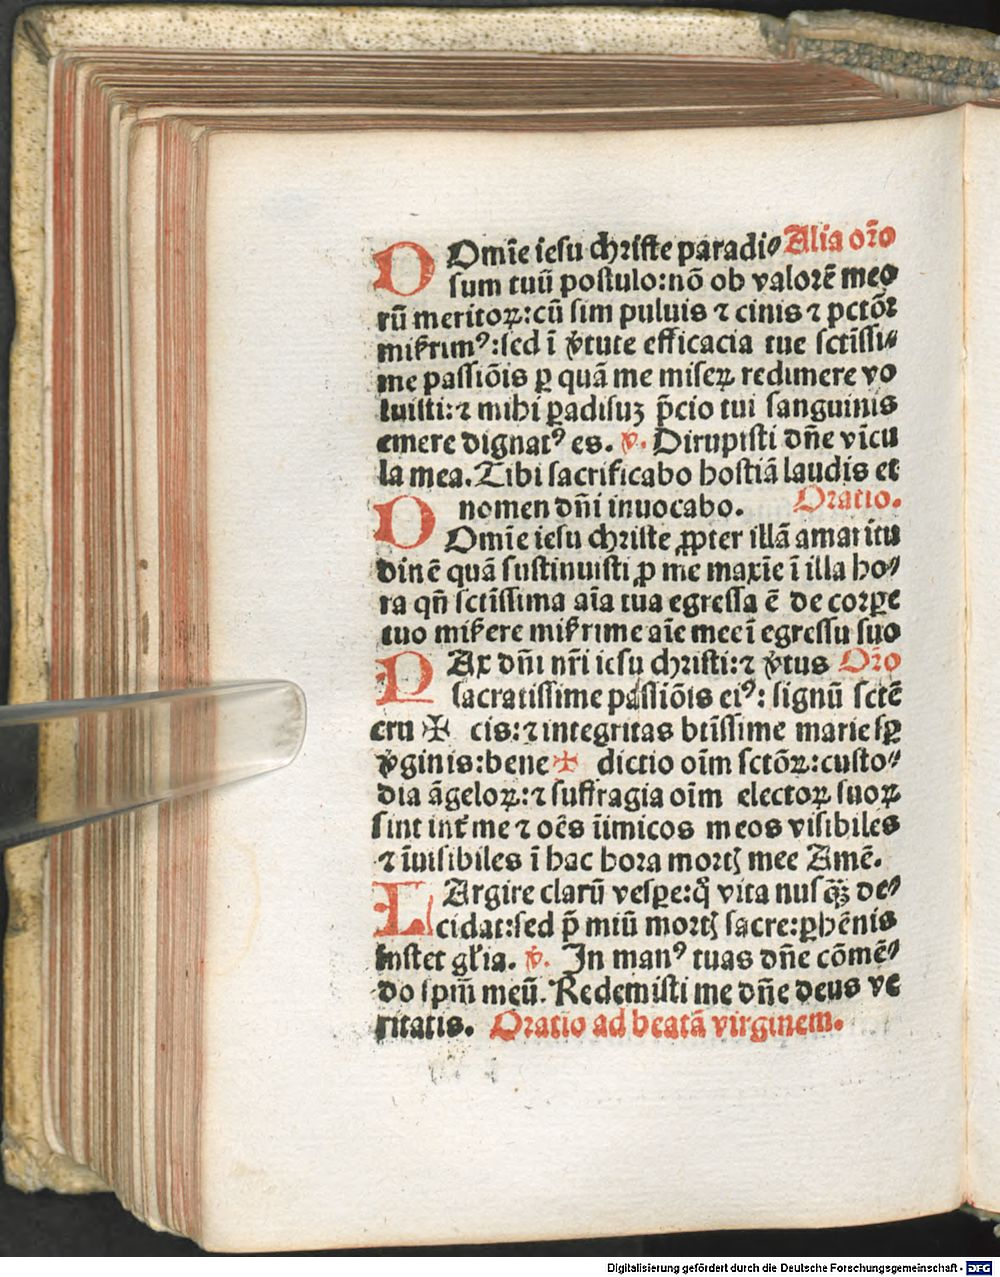 DOmīe iesu christe paradi⸗ Alia or̄o
sum tuū postulo:nō ob valorē meo
rū meritoꝝ:cū sim puluis ⁊ cinis ⁊ pctōꝝ
mis̄rimꝰ:sed ī v̄tute efficacia tue sctīssi⸗
me passiōis ꝑ quā me miseꝝ redimere vo
luisti:⁊ mihi ꝑadisuꝫ p̄cio tui sanguinis
emere dignatꝰ es. ℣. Dirupisti dn̄e vīcu
la mea. Tibi sacrificabo hostiā laudis et
nomen dn̄i inuocabo. Oratio.
DOmīe iesu christe ꝓpter illā amaritu
dinē quā sustinuisti ꝓ me maxīe ī illa ho⸗
ra qn̄ sctīssima aīa tua egressa ē de corꝑe
tuo mis̄ere mis̄rime aīe mee ī egressu suo
PAx dn̄i nr̄i iesu christi:⁊ v̄tus Or̄o
sacratissime passiōis eiꝰ: signū sctē
cru ✠ cis:⁊ integritas btīssime marie sꝑ
v̄ginis:bene ✠ dictio oīm sctōꝝ:custo⸗
dia āgeloꝝ:⁊ suffragia oīm electoꝝ suoꝝ
sint int̄ me ⁊ oēs īimicos meos visibiles
⁊ īuisibiles ī hac hora mortꝭ mee Amē.
LArgire clarū vesꝑe:q̊ vita nusq̄ꝫ de⸗
cidat:sed p̄miū mortꝭ sacre:ꝑhēnis
instet gl̄ia. ℣. In manꝰ tuas dn̄e cōmē⸗
do spm̄ meū. Redemisti me dn̄e deus ve
ritatis. Oratio ad beatā virginem.
Digitalisierung gefördert durch die Deutsche Forschungsgemeinschaft - DFG